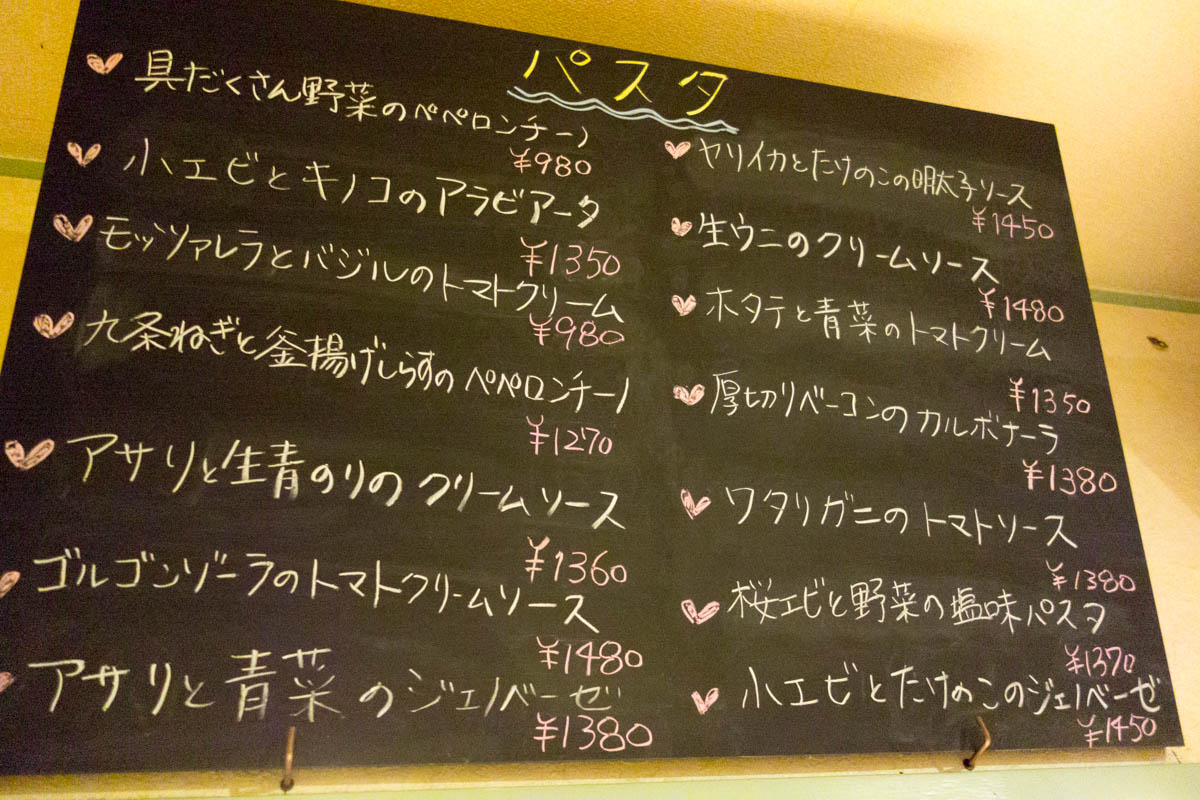 パスタ
具だくさん野菜のペペロンチーノ
¥980
小エビとキノコのアラビアータ
¥1350
モッツァレラとバジルのトマトクリーム
¥980
九条ねぎと釜揚げしらすのペペロンチーノ
¥1270
アサリと生青のりのクリームソース
¥1360
ゴルゴンゾーラのトマトクリームソース
¥1480
アサリと青菜のジェノベーゼ
¥1380
ヤリイカとたけのこの明太子ソース
¥1450
生ウニのクリームソース
¥1480
ホタテと青菜のトマトクリーム
¥1350
厚切りベーコンのカルボナーラ
¥1380
ワタリガニのトマトソース
¥1380
桜エビと野菜の塩味パスタ
¥1370
小エビとたけのこのジェノベーゼ
¥1450